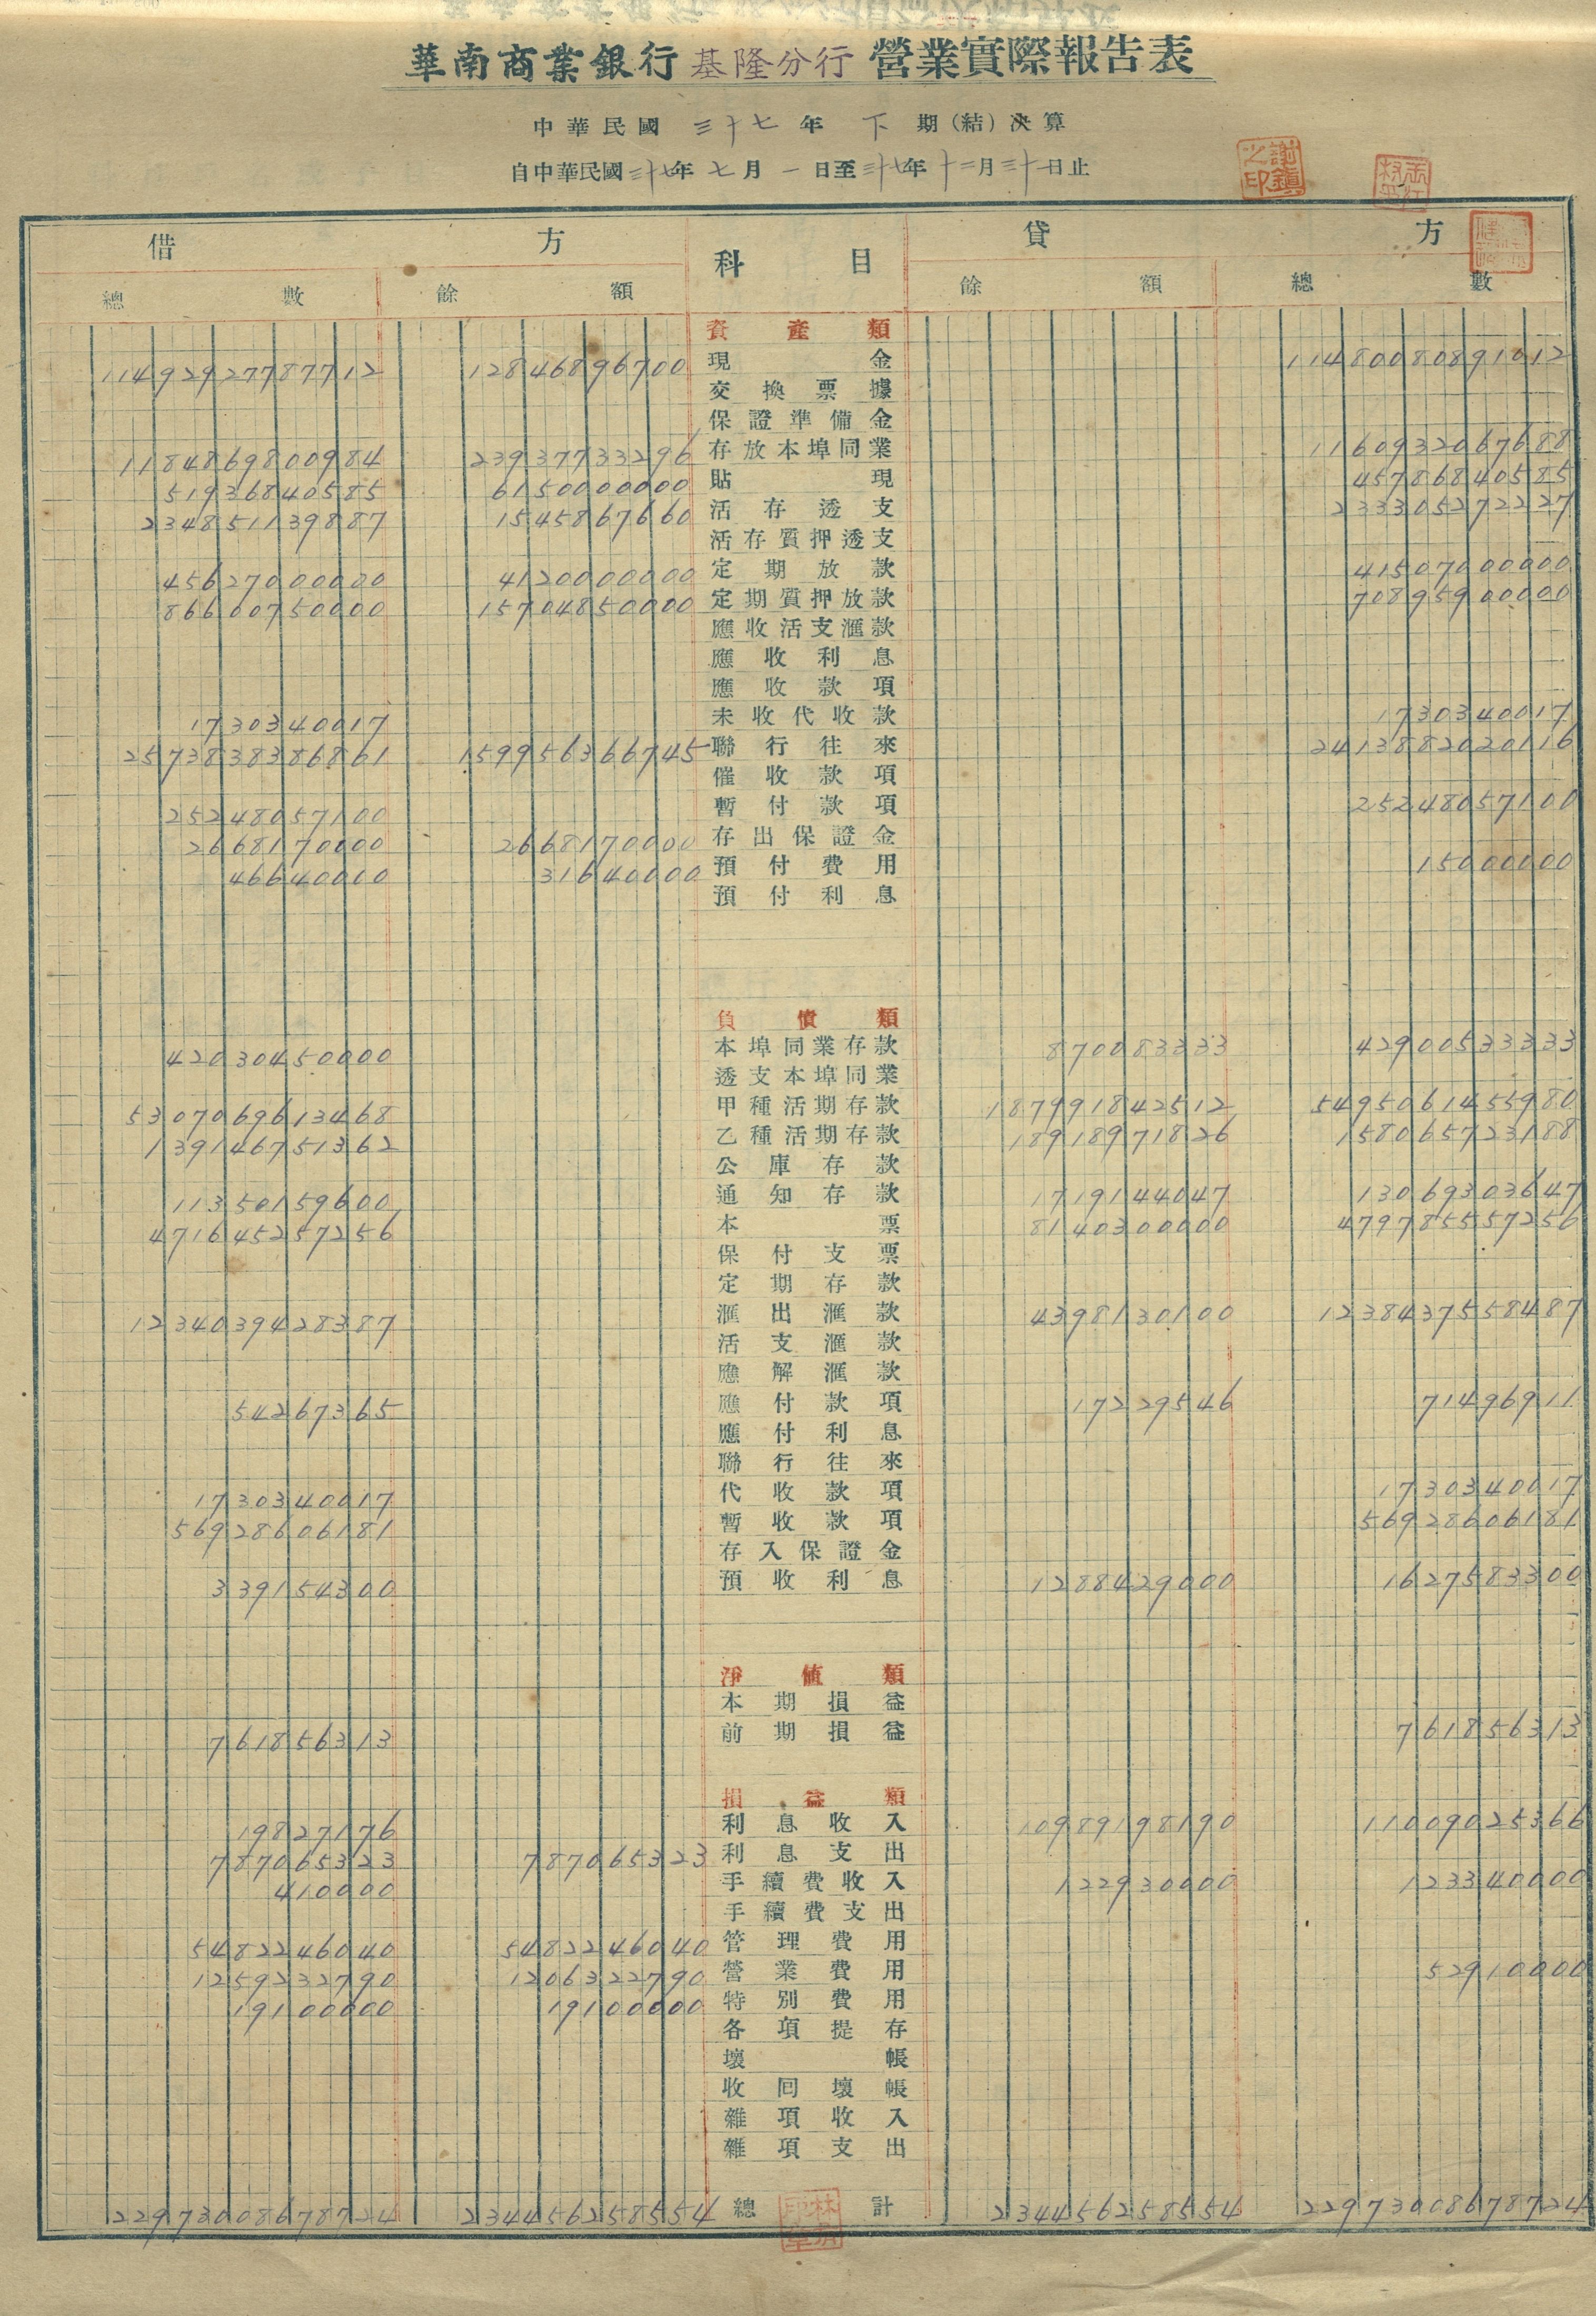 華南商業銀行 基隆分行 營業實際報告表
中華民國 三十七 年 下 期(結)決算
自中華民國三十七年 七月 一日至三十七年十二月三十一日止
謝鎮之印
借 方 科 目 貸 方
總 數 餘 額 餘 額 總 數
資產類
11492927787712 12846896700 現金 11480080891012
交換票據
保證準備金
1184869800984 23937733296 存放本埠同業 1160932067688
51936840585 6150000000 貼現 45786840585
234851139887 1545867660 活存透支 233305272227
活存質押透支
45627000000 4120000000 定期放款 41507000000
86600750000 15704850000 定期質押放款 70895900000
應收活支滙款
應收利息
應收款項
1730340017 未收代收款 1730340017
2573838386861 159956366745 聯行往來 2413882020116
催收款項
25248057100 暫付款項 25248057100
2668170000 2668170000 存出保證金
46640000 31640000 預付費用 15000000
預付利息
負債類
42030450000 本埠同業存款 870083333 42900533333
透支本埠同業
5307069613468 甲種活期存款 187991842512 5495061455980
139146751362 乙種活期存款 18918971826 158065723188
公庫存款
11350159600 通知存款 1719144047 13069303647
471645257256 本票 8140300000 479785557256
保付支票
定期存款
1234039428387 滙出滙款 4398130100 1238437558487
活支滙款
應解滙款
54267365 應付款項 17229546 71496911
應付利息
聯行往來
1730340017 代收款項 1730340017
56928606181 暫收款項 56928606181
存入保證金
339154300 預收利息 1288429000 1627583300
淨值類
本期損益
761856313 前期損益 761856313
損益類
19827176 利息收入 10989198190 11009025366
787065323 787065323 利息支出
410000 手續費收入 122930000 123340000
手續費支出
5482246040 5482246040 管理費用
1259232790 1206322790 營業費用 52910000
19100000 19100000 特別費用
各項提存
壞帳
收回壞帳
雜項收入
雜項支出
22973008678724 234456258554 總計 234456258554 22973008678724